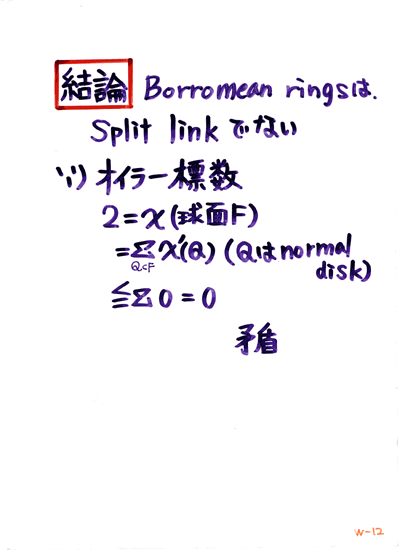 結論 Borromean ringsは、
Split link でない
∵) オイラー標数
2=χ(球面F)
=Σχ'(Q) (Qはnormal
Q⊂F
disk)
≦Σ0=0
矛盾
W-12